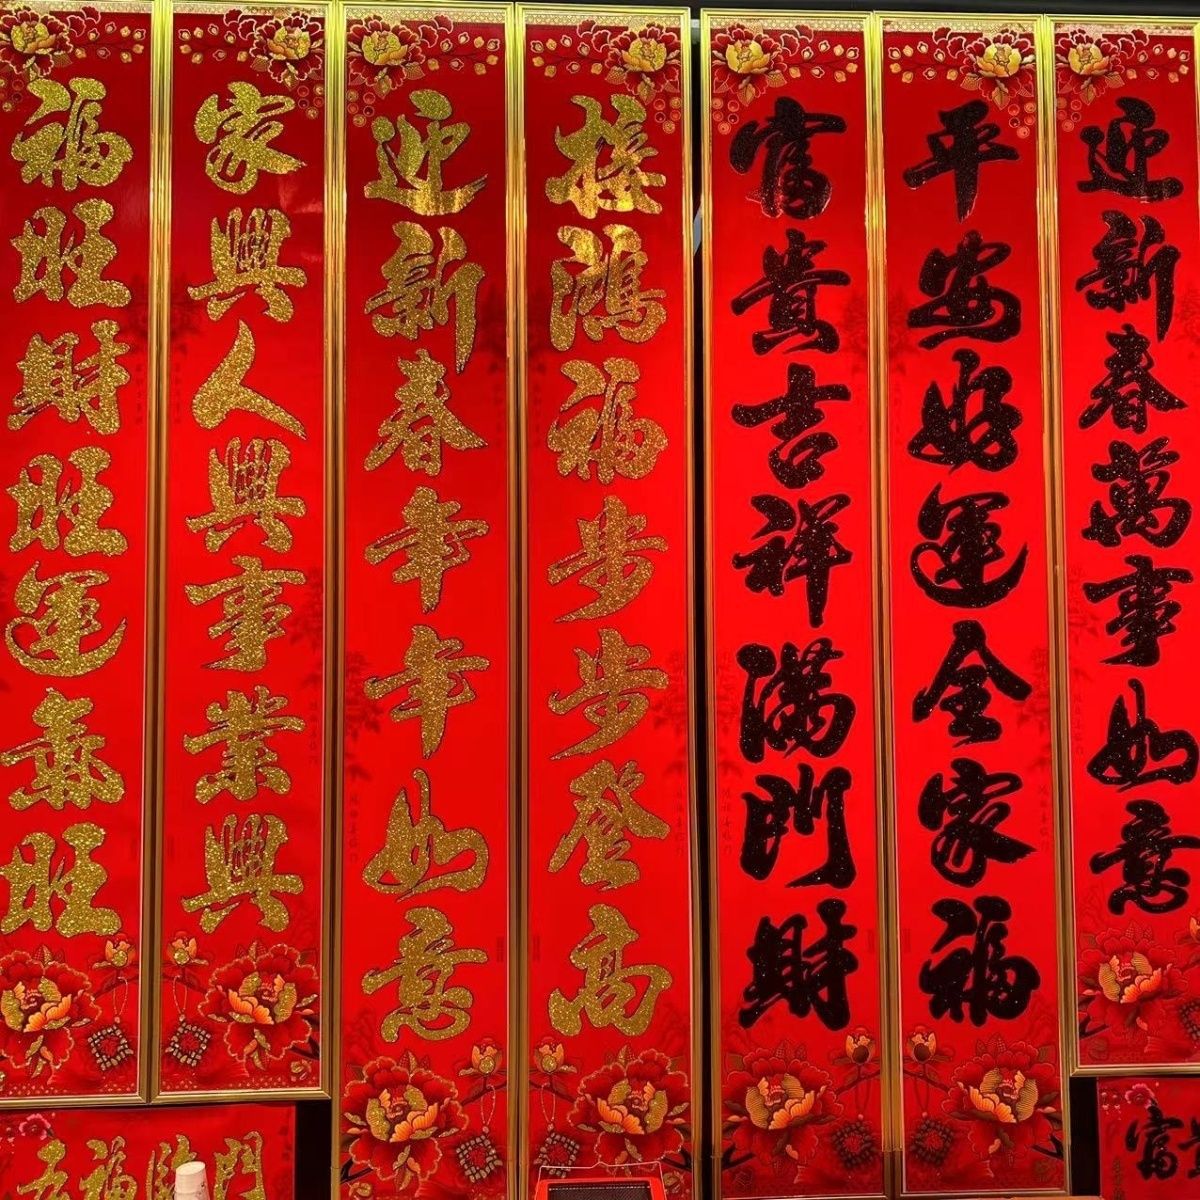 福旺財旺運氣旺
家興人興事業興
迎新春年年如意
接鴻福步步登高
富貴吉祥滿門財
平安好運全家福
迎新春萬事如意
五福臨門
富